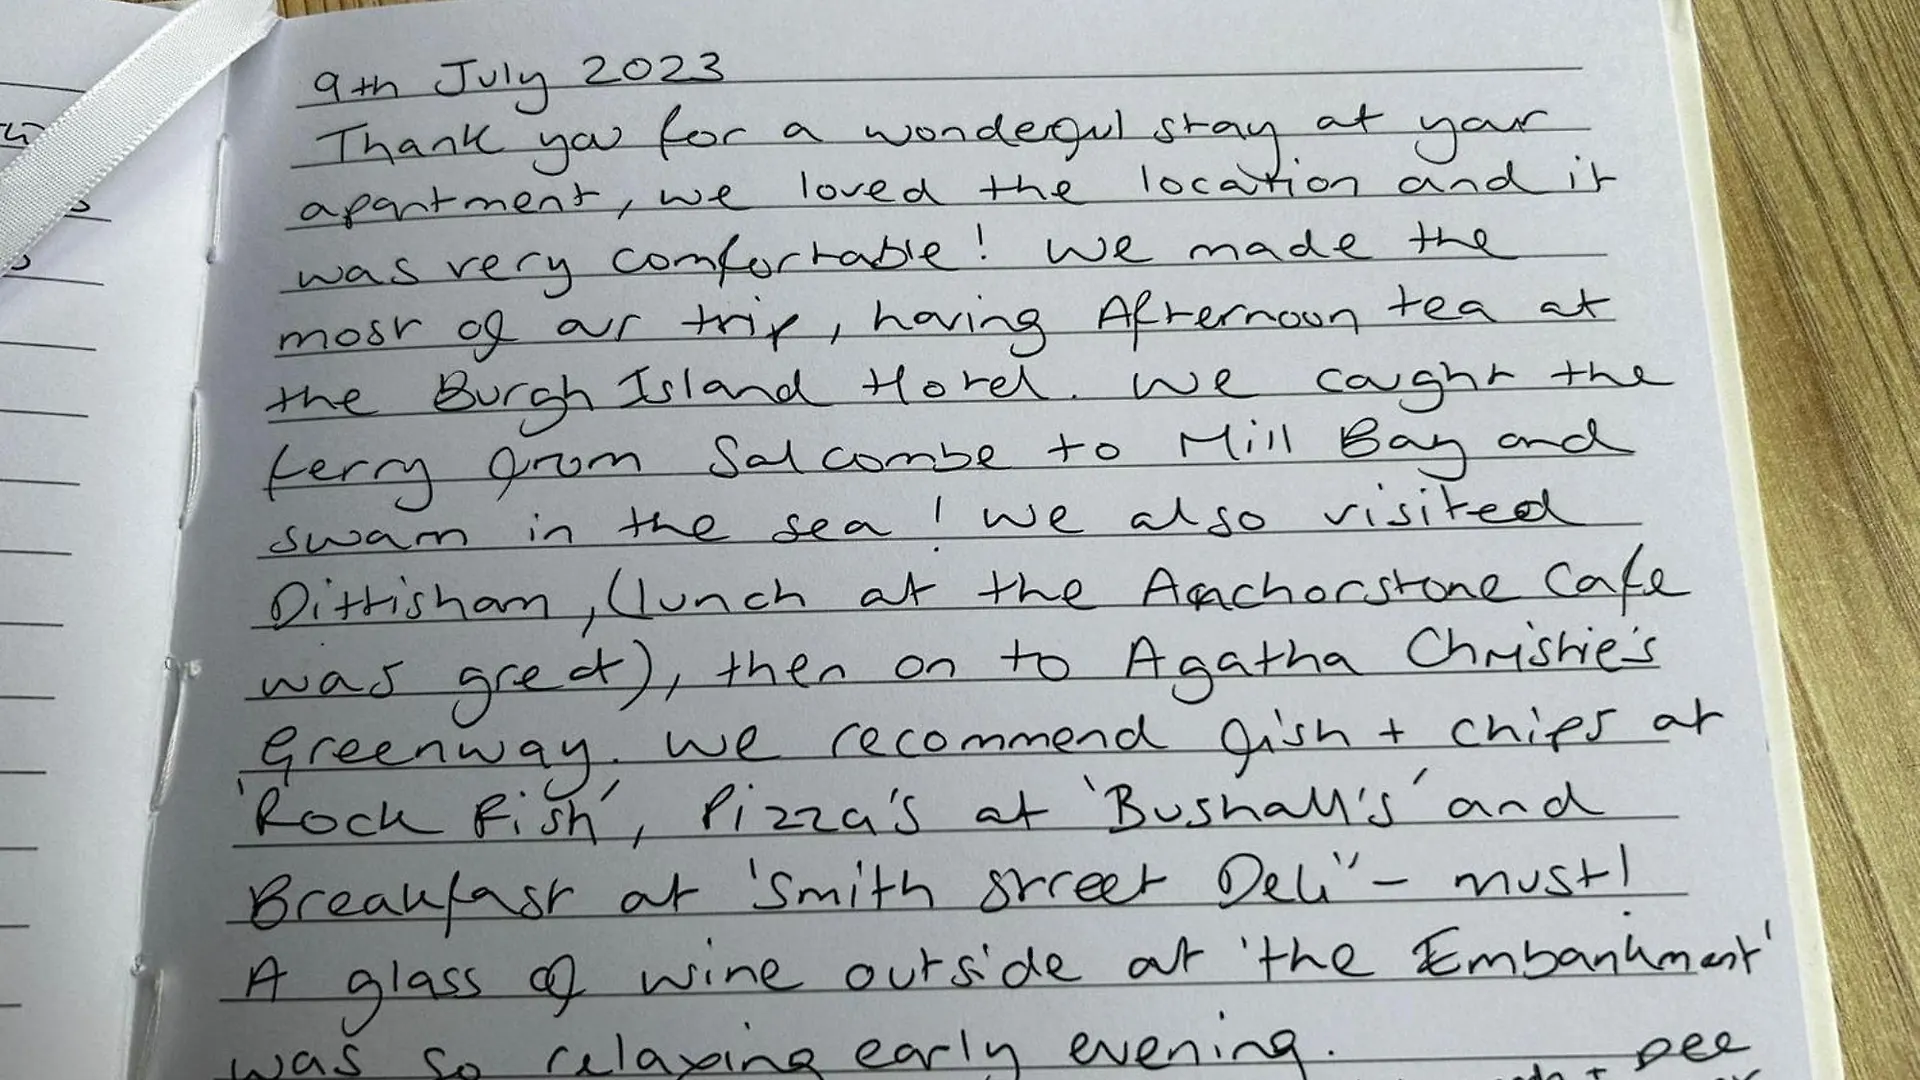 9th July 2023
Thank you for a wonderful stay at your
apartment, we loved the location and it
was very comfortable! We made the
most of our trip, having Afternoon tea at
the Burgh Island Hotel. We caught the
ferry from Salcombe to Mill Bay and
swam in the sea! We also visited
Dittisham, (lunch at the Anchorstone Cafe
was great), then on to Agatha Christie's
Greenway. We recommend fish + chips at
'Rock Fish', Pizza's at 'Bushall's' and
Breakfast at 'Smith Street Deli" - must!
A glass of wine outside at 'the Embankment'
was so relaxing early evening.